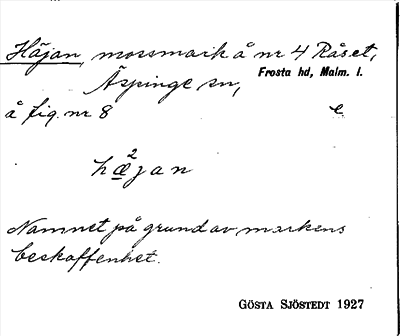 Häjan, mossmark å nr 4 Råset,
Frosta hd, Malm. l.
Äspinge sn,
å fig. nr 8 e.
hæ²jan
Namnet på grund av markens
beskaffenhet.
GÖSTA SJÖSTEDT 1927